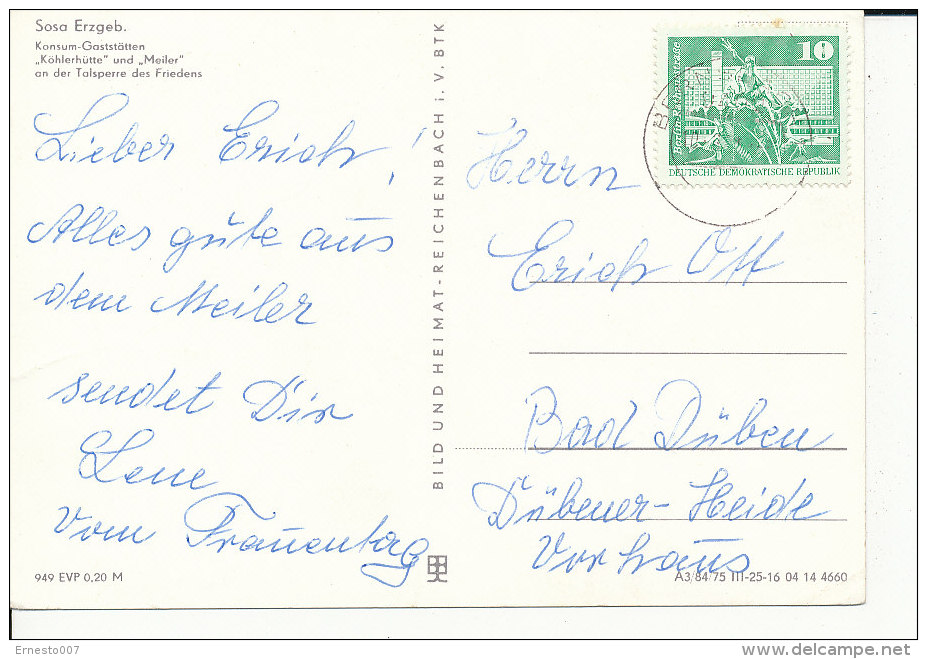 Sosa Erzgeb.
Konsum-Gaststätten
„Köhlerhütte" und „Meiler"
an der Talsperre des Friedens
Lieber Erich!
Alles gute aus
dem Meiler
sendet Dir
Lene
Vom Frauentag
949 EVP 0,20 M
BILD UND HEIMAT-REICHENBACH i. V. BTK
10
DEUTSCHE DEMOKRATISCHE REPUBLIK
Herrn
Erich Ott
Bad Düben
Dübener-Heide
Vorhaus
A3/84/75 III-25-16 04 14 4660
Ernesto007
delcampe.net